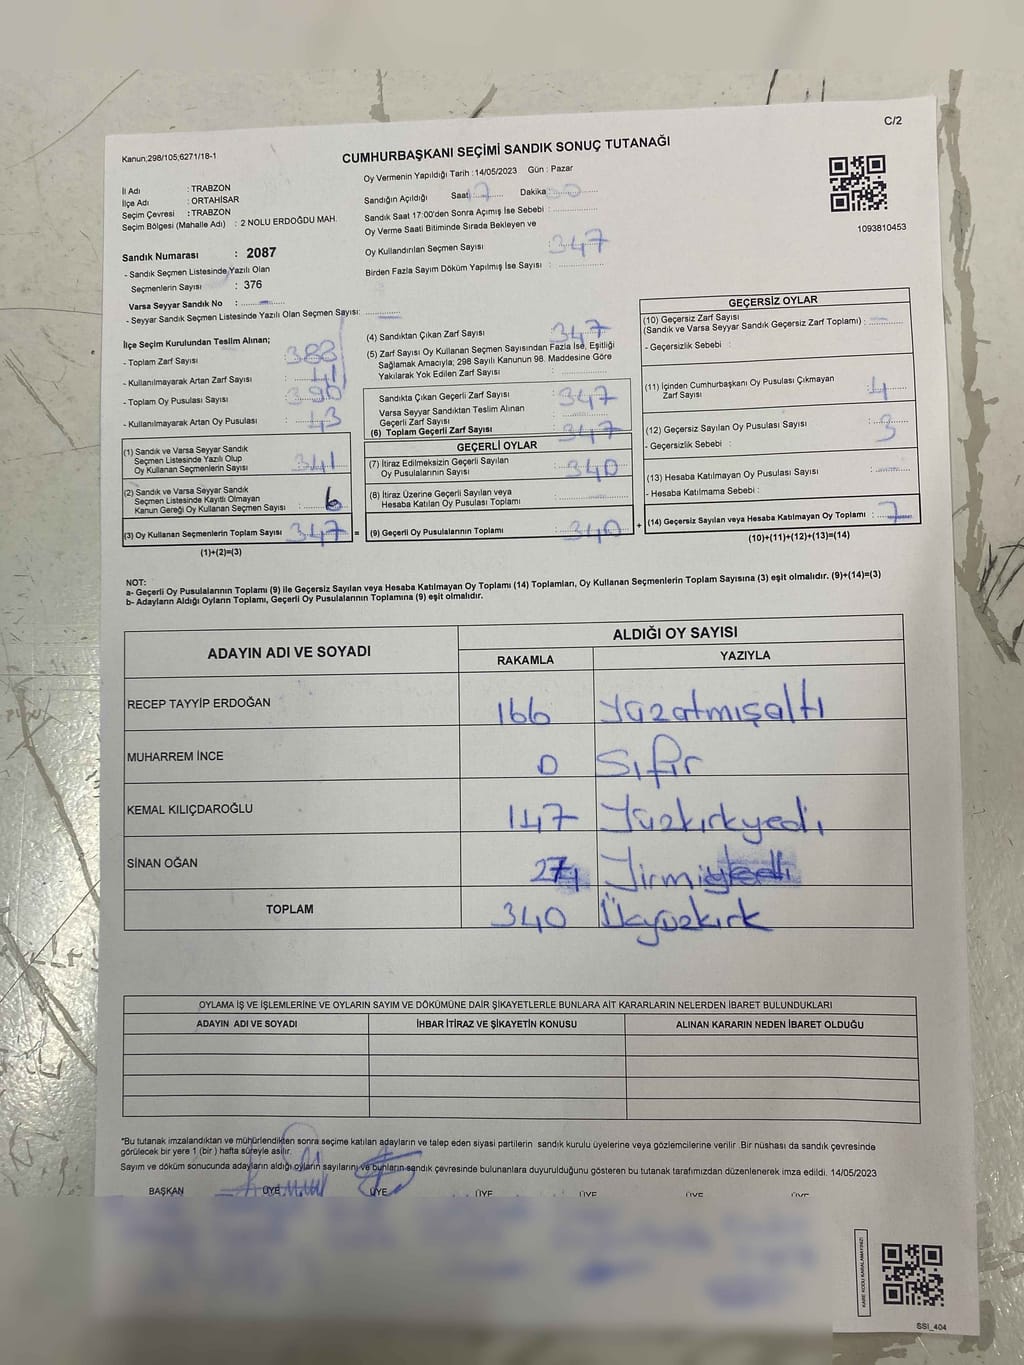 C/2
Kanun;298/105;6271/18-1
CUMHURBAŞKANI SEÇİMİ SANDIK SONUÇ TUTANAĞI
Oy Vermenin Yapıldığı Tarih : 14/05/2023 Gün : Pazar
İl Adı : TRABZON
İlçe Adı : ORTAHİSAR
Seçim Çevresi : TRABZON
Seçim Bölgesi (Mahalle Adı) : 2 NOLU ERDOĞDU MAH.
Sandığın Açıldığı Saat Dakika
Sandık Saat 17:00'den Sonra Açımış İse Sebebi :
Oy Verme Saati Bitiminde Sırada Bekleyen ve
Oy Kullandırılan Seçmen Sayısı : 347
Birden Fazla Sayım Döküm Yapılmış İse Sayısı :
1093810453
Sandık Numarası : 2087
- Sandık Seçmen Listesinde Yazılı Olan
Seçmenlerin Sayısı : 376
Varsa Seyyar Sandık No : -
- Seyyar Sandık Seçmen Listesinde Yazılı Olan Seçmen Sayısı: -
İlçe Seçim Kurulundan Teslim Alınan;
- Toplam Zarf Sayısı : 388
- Kullanılmayarak Artan Zarf Sayısı : 41
- Toplam Oy Pusulası Sayısı : 390
- Kullanılmayarak Artan Oy Pusulası : 43
(1) Sandık ve Varsa Seyyar Sandık
Seçmen Listesinde Yazılı Olup
Oy Kullanan Seçmenlerin Sayısı : 341
(2) Sandık ve Varsa Seyyar Sandık
Seçmen Listesinde Kayıtlı Olmayan
Kanun Gereği Oy Kullanan Seçmen Sayısı : 6
(3) Oy Kullanan Seçmenlerin Toplam Sayısı : 347 =
(1)+(2)=(3)
(4) Sandıktan Çıkan Zarf Sayısı : 347
(5) Zarf Sayısı Oy Kullanan Seçmen Sayısından Fazla İse, Eşitliği
Sağlamak Amacıyla; 298 Sayılı Kanunun 98. Maddesine Göre
Yakılarak Yok Edilen Zarf Sayısı :
Sandıkta Çıkan Geçerli Zarf Sayısı : 347
Varsa Seyyar Sandıktan Teslim Alınan
Geçerli Zarf Sayısı :
(6) Toplam Geçerli Zarf Sayısı : 347
GEÇERLİ OYLAR
(7) İtiraz Edilmeksizin Geçerli Sayılan
Oy Pusulalarının Sayısı : 340
(8) İtiraz Üzerine Geçerli Sayılan veya
Hesaba Katılan Oy Pusulası Toplamı :
(9) Geçerli Oy Pusulalarının Toplamı : 340 +
GEÇERSİZ OYLAR
(10) Geçersiz Zarf Sayısı
(Sandık ve Varsa Seyyar Sandık Geçersiz Zarf Toplamı) : -
- Geçersizlik Sebebi :
(11) İçinden Cumhurbaşkanı Oy Pusulası Çıkmayan
Zarf Sayısı : 4
(12) Geçersiz Sayılan Oy Pusulası Sayısı : 3
- Geçersizlik Sebebi :
(13) Hesaba Katılmayan Oy Pusulası Sayısı :
- Hesaba Katılmama Sebebi :
(14) Geçersiz Sayılan veya Hesaba Katılmayan Oy Toplamı : 7
(10)+(11)+(12)+(13)=(14)
NOT:
a- Geçerli Oy Pusulalarının Toplamı (9) ile Geçersiz Sayılan veya Hesaba Katılmayan Oy Toplamı (14) Toplamları, Oy Kullanan Seçmenlerin Toplam Sayısına (3) eşit olmalıdır. (9)+(14)=(3)
b- Adayların Aldığı Oyların Toplamı, Geçerli Oy Pusulalarının Toplamına (9) eşit olmalıdır.
ADAYIN ADI VE SOYADI
ALDIĞI OY SAYISI
RAKAMLA YAZIYLA
RECEP TAYYİP ERDOĞAN 166 Yüzatmışaltı
MUHARREM İNCE 0 Sıfır
KEMAL KILIÇDAROĞLU 147 Yüzkırkyedi
SİNAN OĞAN 27 Yirmiyedi
TOPLAM 340 Üçyüzkırk
OYLAMA İŞ VE İŞLEMLERİNE VE OYLARIN SAYIM VE DÖKÜMÜNE DAİR ŞİKAYETLERLE BUNLARA AİT KARARLARIN NELERDEN İBARET BULUNDUKLARI
ADAYIN ADI VE SOYADI İHBAR İTİRAZ VE ŞİKAYETİN KONUSU ALINAN KARARIN NEDEN İBARET OLDUĞU
*Bu tutanak imzalandıktan ve mühürlendikten sonra seçime katılan adayların ve talep eden siyasi partilerin sandık kurulu üyelerine veya gözlemcilerine verilir. Bir nüshası da sandık çevresinde
görülecek bir yere 1 (bir) hafta süreyle asılır.
Sayım ve döküm sonucunda adayların aldığı oyların sayılarını ve bunların sandık çevresinde bulunanlara duyurulduğunu gösteren bu tutanak tarafımızdan düzenlenerek imza edildi. 14/05/2023
BAŞKAN ÜYE ÜYE ÜYE ÜYE ÜYE ÜYE
KARE KODU KARALAMAYINIZ!
SSI_404